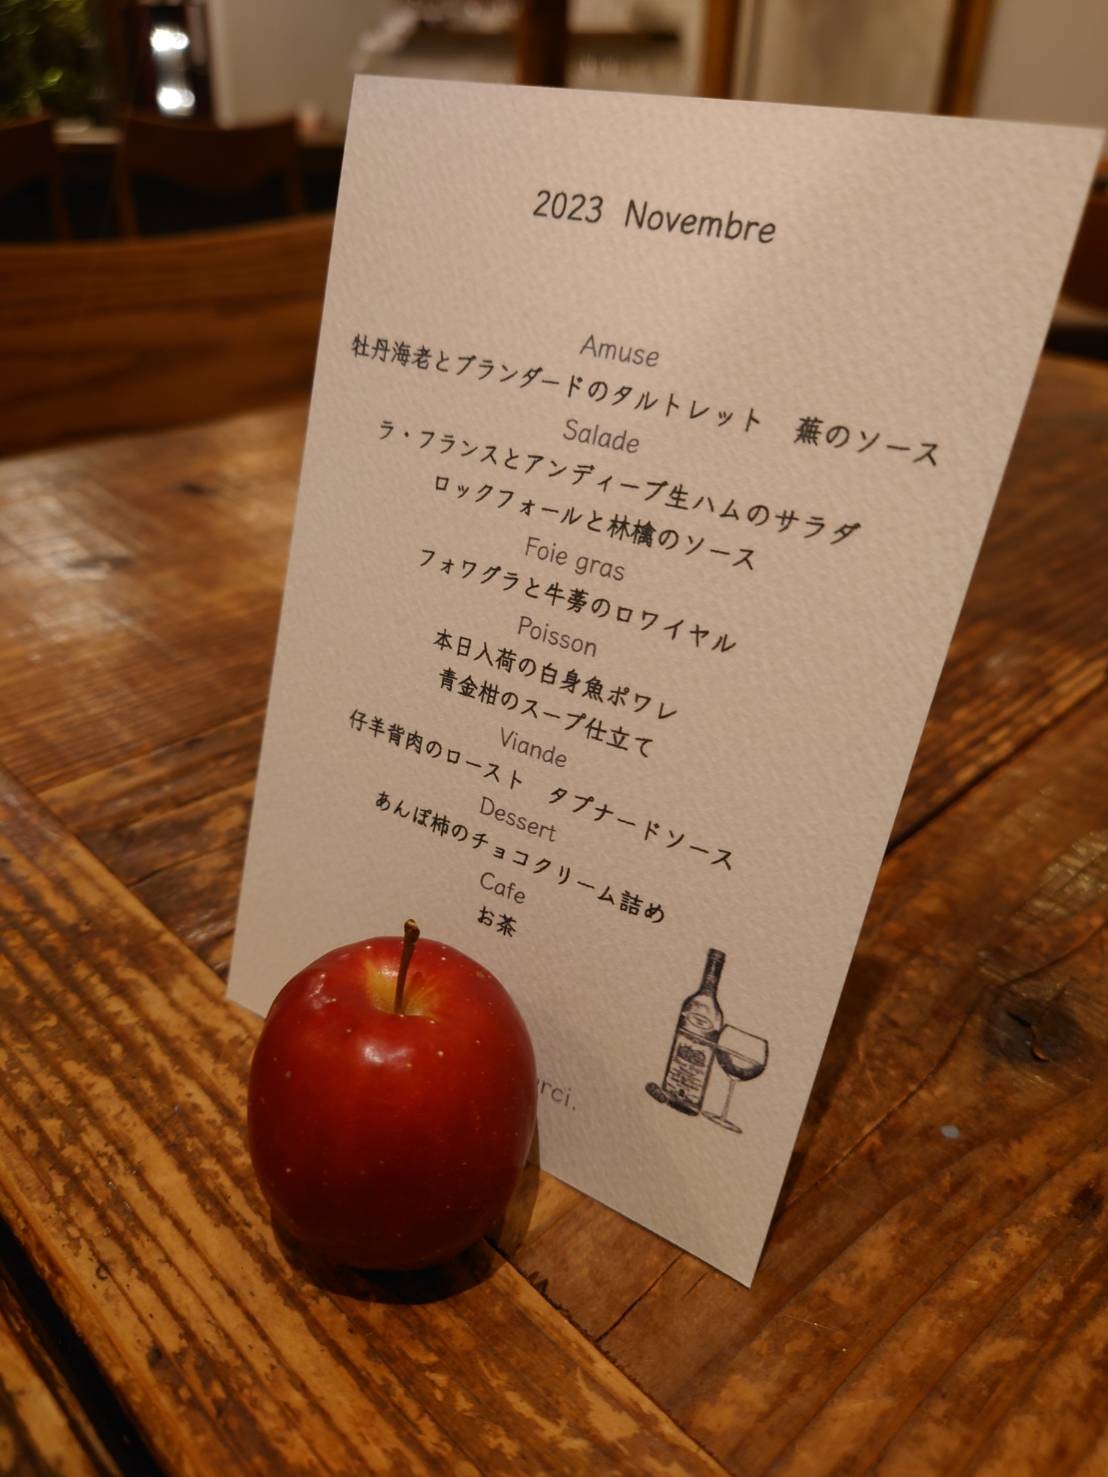 2023 Novembre
Amuse
牡丹海老とブランダードのタルトレット　蕪のソース
Salade
ラ・フランスとアンディーブ生ハムのサラダ
ロックフォールと林檎のソース
Foie gras
フォワグラと牛蒡のロワイヤル
Poisson
本日入荷の白身魚ポワレ
青金柑のスープ仕立て
Viande
仔羊背肉のロースト　タプナードソース
Dessert
あんぽ柿のチョコクリーム詰め
Cafe
お茶
rci.